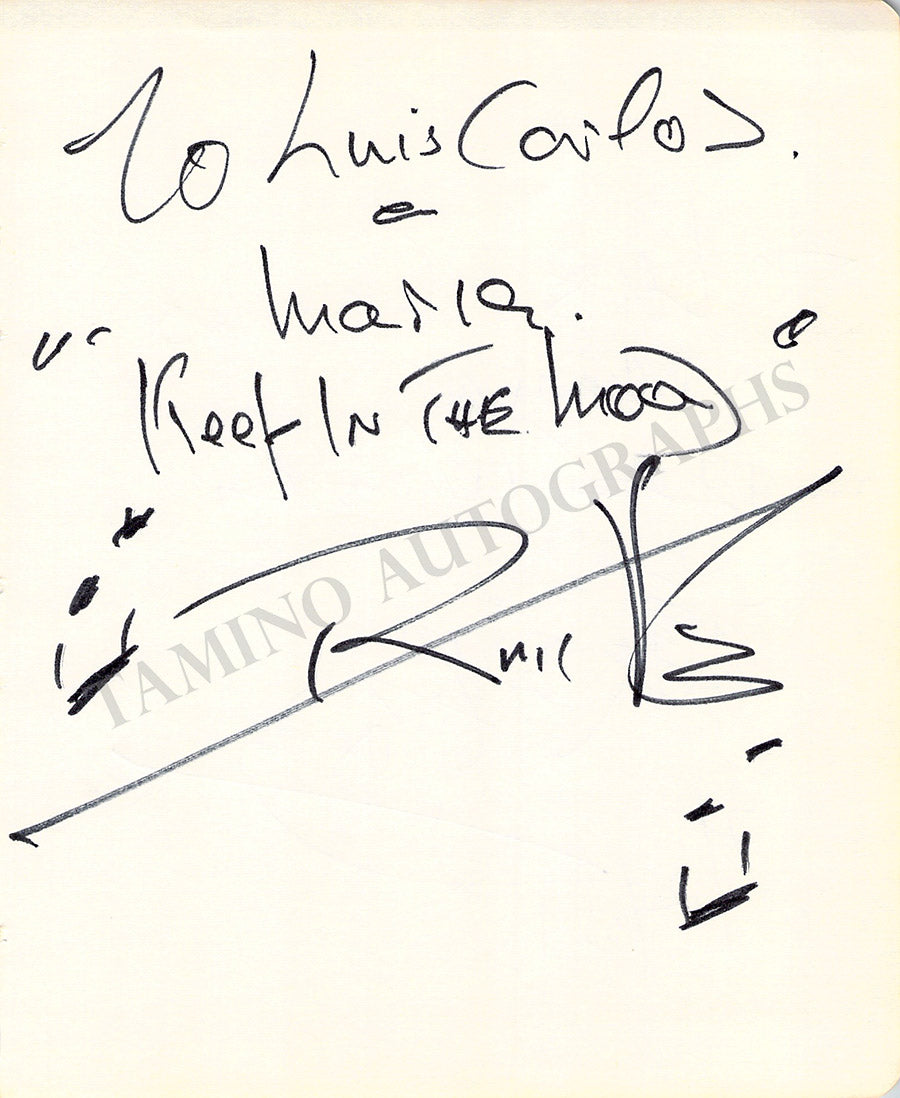 To Luis Carlos.
e
Maria.
"Keep IN THE Mood"
TAMINO AUTOGRAPHS